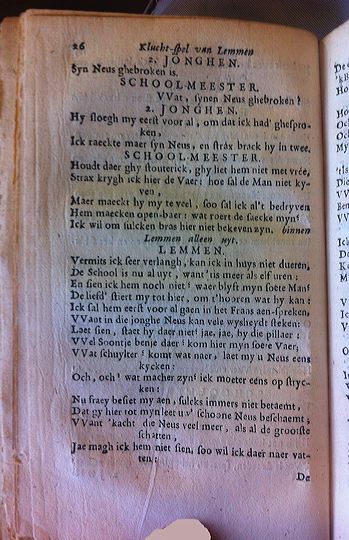 26 Klucht-spel van Lemmen
2. JONGHEN.
Syn Neus ghebroken is.
SCHOOLMEESTER.
VVat, synen Neus ghebroken?
2. JONGHEN.
Hy sloegh my eerst voor al, om dat ick had' ghespro-
ken,
Ick raeckte maer syn Neus, en strax brack hy in twee.
SCHOOLMEESTER.
Houdt daer ghy stouterick, ghy liet hem niet met vrée,
Strax krygh ick hier de Vaer: hoe sal de Man niet ky-
ven,
Maer maeckt hy my te veel, soo sal ick al't bedryven
Hem maecken open-baer: wat roert de saecke myns
Ick wil om sulcken bras hier niet bekeven zyn. binnen
Lemmen alleen uyt.
LEMMEN.
Vermits ick seer verlangh, kan ick in huys niet dueren,
De School is nu al uyt, want 'tis meer als elf uren:
En sien ick hem noch niet? waer blyft myn soete Mans
De liefd' stiert my tot hier, om t'hooren wat hy kan:
Ick sal hem eerst voor al gaen in het Frans aen-spreken,
VVant in die jonghe Neus kan vele wysheydt steken:
Laet sien, staet hy daer niet? jae, jae, hy die pillaer:
VVel Soontje benje daer? kom hier myn soete Vaer;
VVat schuylter? komt wat naer, laet my u Neus eens
kycken:
Och, och! wat macher zyn? ick moeter eens op stryc-
ken:
Nu fraey besiet my aen, sulcks immers niet betaemt,
Dat gy hier tot myn leet uw' schoone Neus beschaemt;
VVant 'kacht die Neus veel meer, als al de grootste
schatten,
Jae magh ick hem niet sien, soo wil ick daer naer vat-
ten:
De